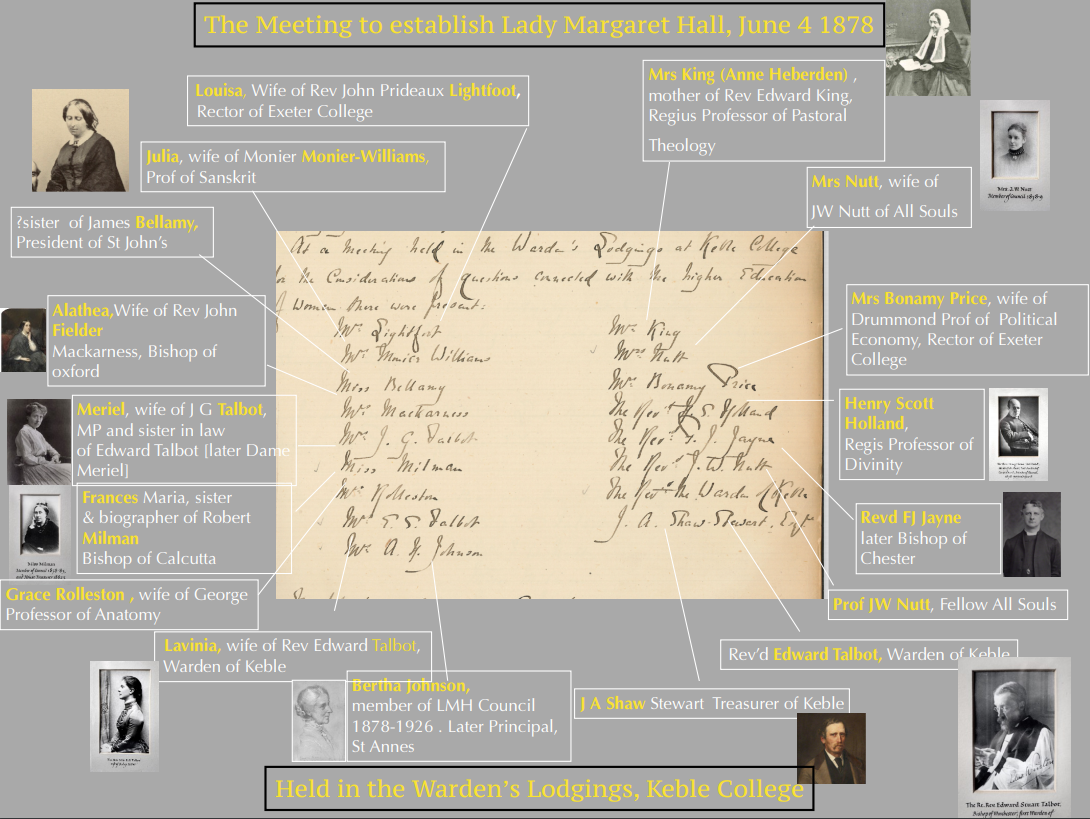 The Meeting to establish Lady Margaret Hall, June 4 1878
Louisa, Wife of Rev John Prideaux Lightfoot,
Rector of Exeter College
Mrs King (Anne Heberden) ,
mother of Rev Edward King,
Regius Professor of Pastoral
Theology
Julia, wife of Monier Monier-Williams,
Prof of Sanskrit
Mrs Nutt, wife of
JW Nutt of All Souls
Mrs. J. W. Nutt
Member of Council 1878-9
?sister of James Bellamy,
President of St John's
At a Meeting held in the Warden's Lodgings at Keble College
for the Consideration of questions connected with the higher Education
of Women there were present:
Mrs Lightfoot
Mrs Monier Williams
Miss Bellamy
Mrs Mackarness
Mrs J. G. Talbot
Miss Milman
Mrs Rolleston
Mrs E. S. Talbot
Mrs A. H. Johnson
Mrs King
Mrs Nutt
Mrs Bonamy Price
The Revd H. S. Holland
The Revd F. J. Jayne
The Revd J. W. Nutt
The Revd the Warden of Keble
J. A. Shaw-Stewart, Esqr
Alathea,Wife of Rev John
Fielder
Mackarness, Bishop of
oxford
Mrs Bonamy Price, wife of
Drummond Prof of Political
Economy, Rector of Exeter
College
Meriel, wife of J G Talbot,
MP and sister in law
of Edward Talbot [later Dame
Meriel]
Henry Scott
Holland,
Regis Professor of
Divinity
Frances Maria, sister
& biographer of Robert
Milman
Bishop of Calcutta
Miss Milman
Revd FJ Jayne
later Bishop of
Chester
Grace Rolleston , wife of George
Professor of Anatomy
Prof JW Nutt, Fellow All Souls
Lavinia, wife of Rev Edward Talbot,
Warden of Keble
Rev'd Edward Talbot, Warden of Keble
Bertha Johnson,
member of LMH Council
1878-1926 . Later Principal,
St Annes
J A Shaw Stewart Treasurer of Keble
The Rt. Rev. Edward Stuart Talbot,
Bishop of Winchester, first Warden of
Held in the Warden's Lodgings, Keble College